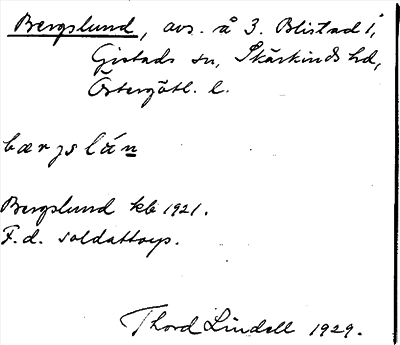 Bergslund, avs. å 3. Blistad 1,
Gistads sn, Skärkinds hd,
Östergötl. l.
bærgslún
Bergslund kb 1921.
F.d. soldattorp.
Thord Lindell 1929.